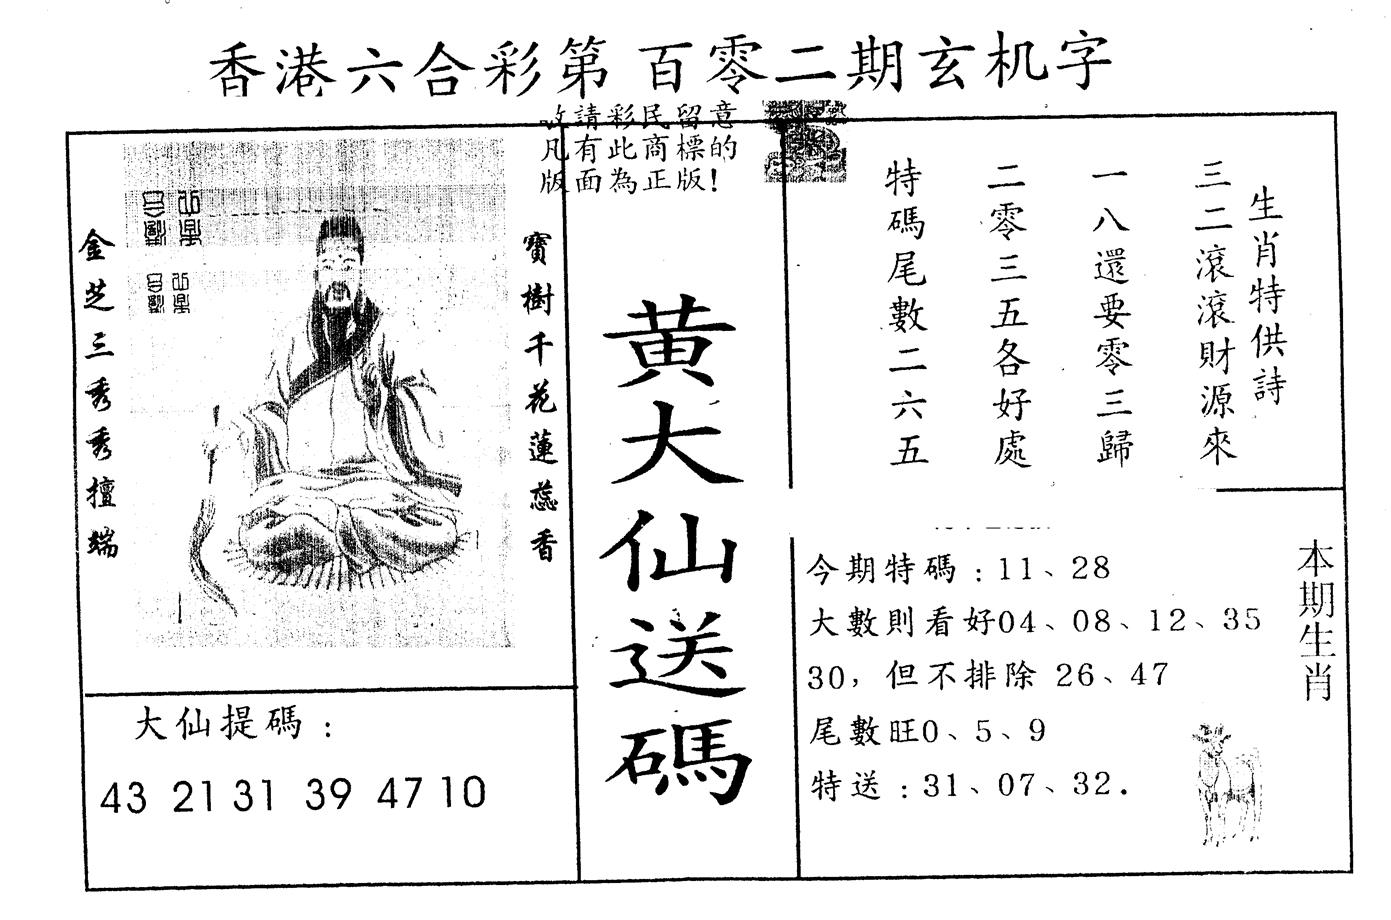 香港六合彩第 百零二期玄机字
敬請彩民留意
凡有此商標的
版面為正版!
金芝三秀秀擅端
寶樹千花蓮蕊香
黄大仙送碼
生肖特供詩
三二滾滾財源來
一八還要零三歸
二零三五各好處
特碼尾數二六五
大仙提碼：
43 21 31 39 47 10
今期特碼：11、28
大數則看好04、08、12、35
30，但不排除 26、47
尾數旺0、5、9
特送：31、07、32.
本期生肖